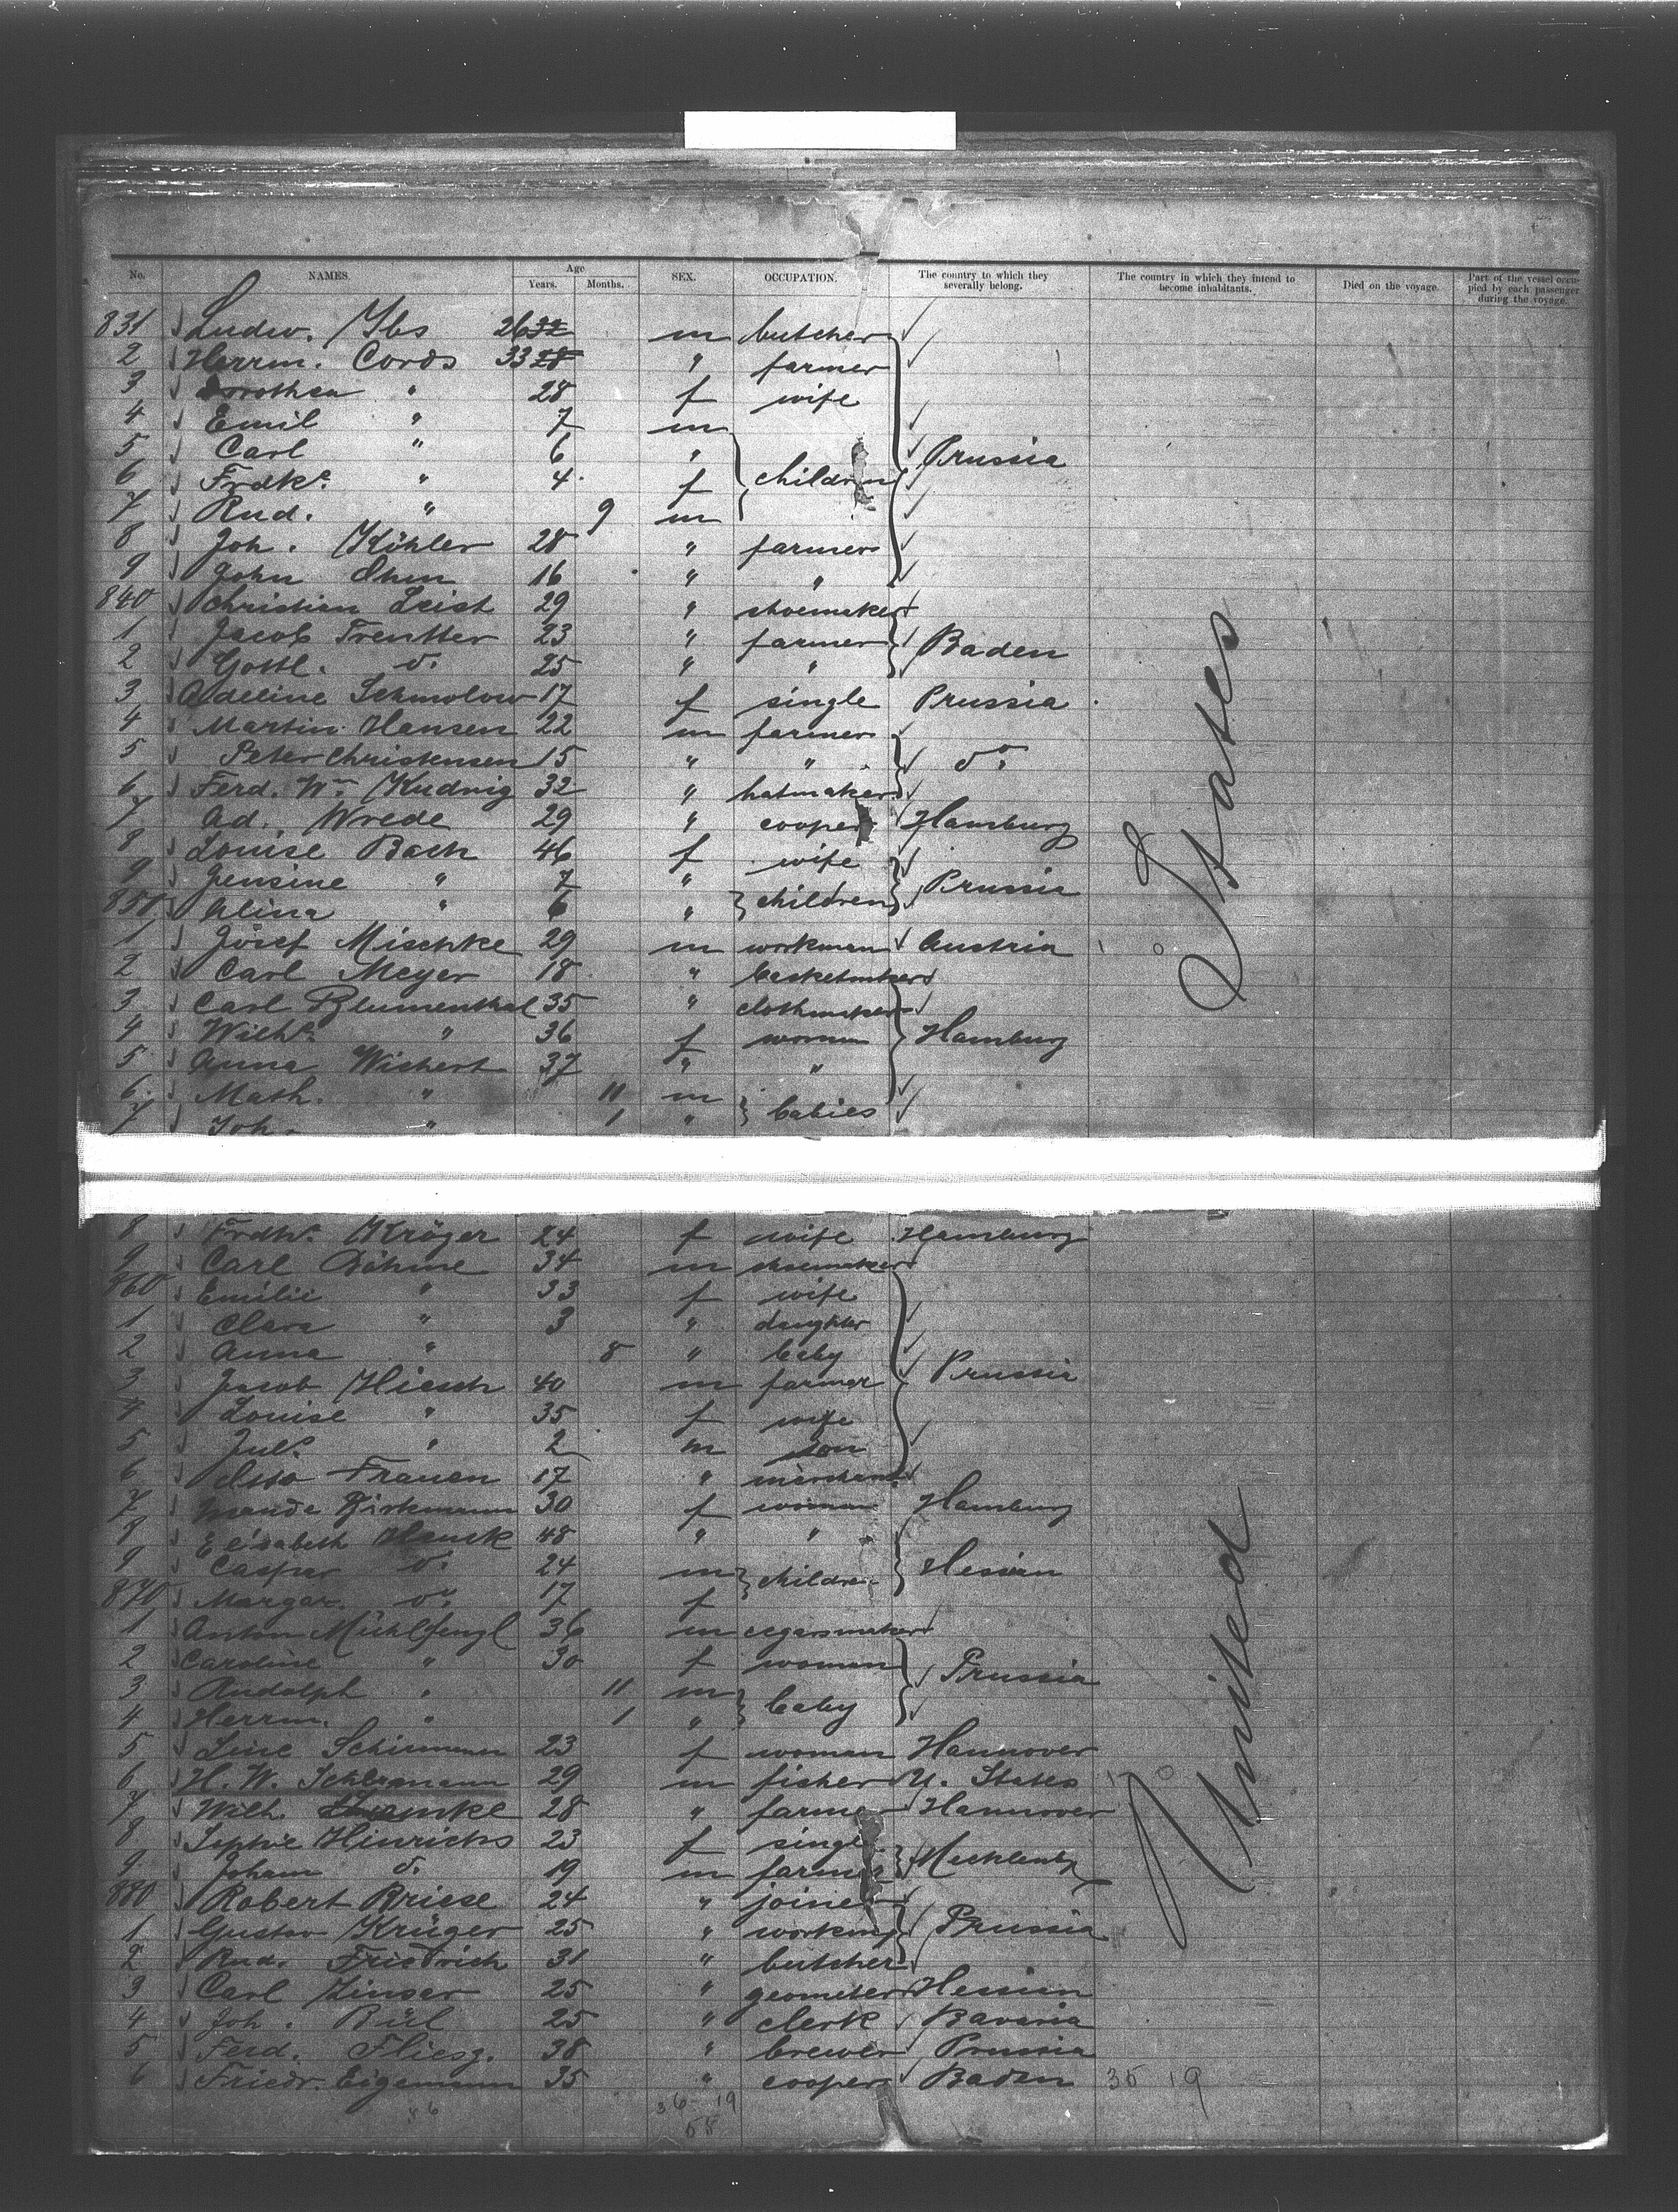 No. NAMES. Age Years. Months. SEX. OCCUPATION. The country to which they severally belong. The country in which they intend to become inhabitants. Died on the voyage. Part of the vessel occupied by each passenger during the voyage.
831 Ludw. Ibs 26 32 m butcher
2 Herrm. Cords 33 28 " farmer
3 Dorothea " 28 f wife
4 Emil " 7 m
5 Carl " 6 " Prussia
6 Frdke. " 4 f children
7 Rud. " 9 m
8 Joh. Köhler 28 " farmer
9 John 16 " "
840 Christian Leist 29 " shoemaker
1 Jacob Treutter 23 " farmer Baden
2 Gottl. do. 25 " "
3 Adeline Schmolow 17 f single Prussia
4 Martin Hansen 22 m farmer
5 Peter Christensen 15 " " do.
6 Ferd. Wm. Kudwig 32 " hatmaker
7 Ad. Wrede 29 " cooper Hamburg
8 Louise Bach 46 f wife
9 Jensine " 7 " Prussia
850 Alina " 6 " children
1 Josef Mischke 29 m workman Austria
2 Carl Meyer 18 " basketmaker
3 Carl Blumenthal 35 " clothmaker
4 Wilhe. " 36 f woman Hamburg
5 Anna Wichert 37 " "
6 Math. " 11 m
7 Joh. " 1 " babies
States
8 Frdke. Kröger 24 f wife Hamburg
9 Carl Böhme 34 m shoemaker
860 Emilie " 33 f wife
1 Clara " 3 " daughter
2 Anna " 8 " baby
3 Jacob Hiesch 40 m farmer Prussia
4 Louise " 35 f wife
5 Juls. " 2 m son
6 Otto Frauen 17 " merchant
7 30 f woman Hamburg
8 Elisabeth Hauck 48 " "
9 Caspar do. 24 m children Hessian
870 Margar. do. 17 f
1 Anton Mühlfengl 36 m cegarsmaker
2 Caroline " 30 f woman Prussia
3 Rudolph " 11 m
4 Herrm. " 1 " baby
5 Line Schirmman 23 f woman Hannover
6 H. W. Schlermann 29 m fisher U. States
7 Wilh. 28 " farmer Hannover
8 Sophie Hinrichs 23 f single
9 Joham do. 19 m farmer Mecklenbg
880 Robert Briese 24 " joiner
1 Gustav Krüger 25 " workmg Prussia
2 Rud. Friedrich 31 " butcher
3 Carl Zinser 25 " geometer Hessian
4 Joh. Bül 25 " clerk Bavaria
5 Ferd. Fliesz. 38 " brewer Prussia
6 Friedr. Eigemann 35 " cooper Baden 35 19
United
36 19